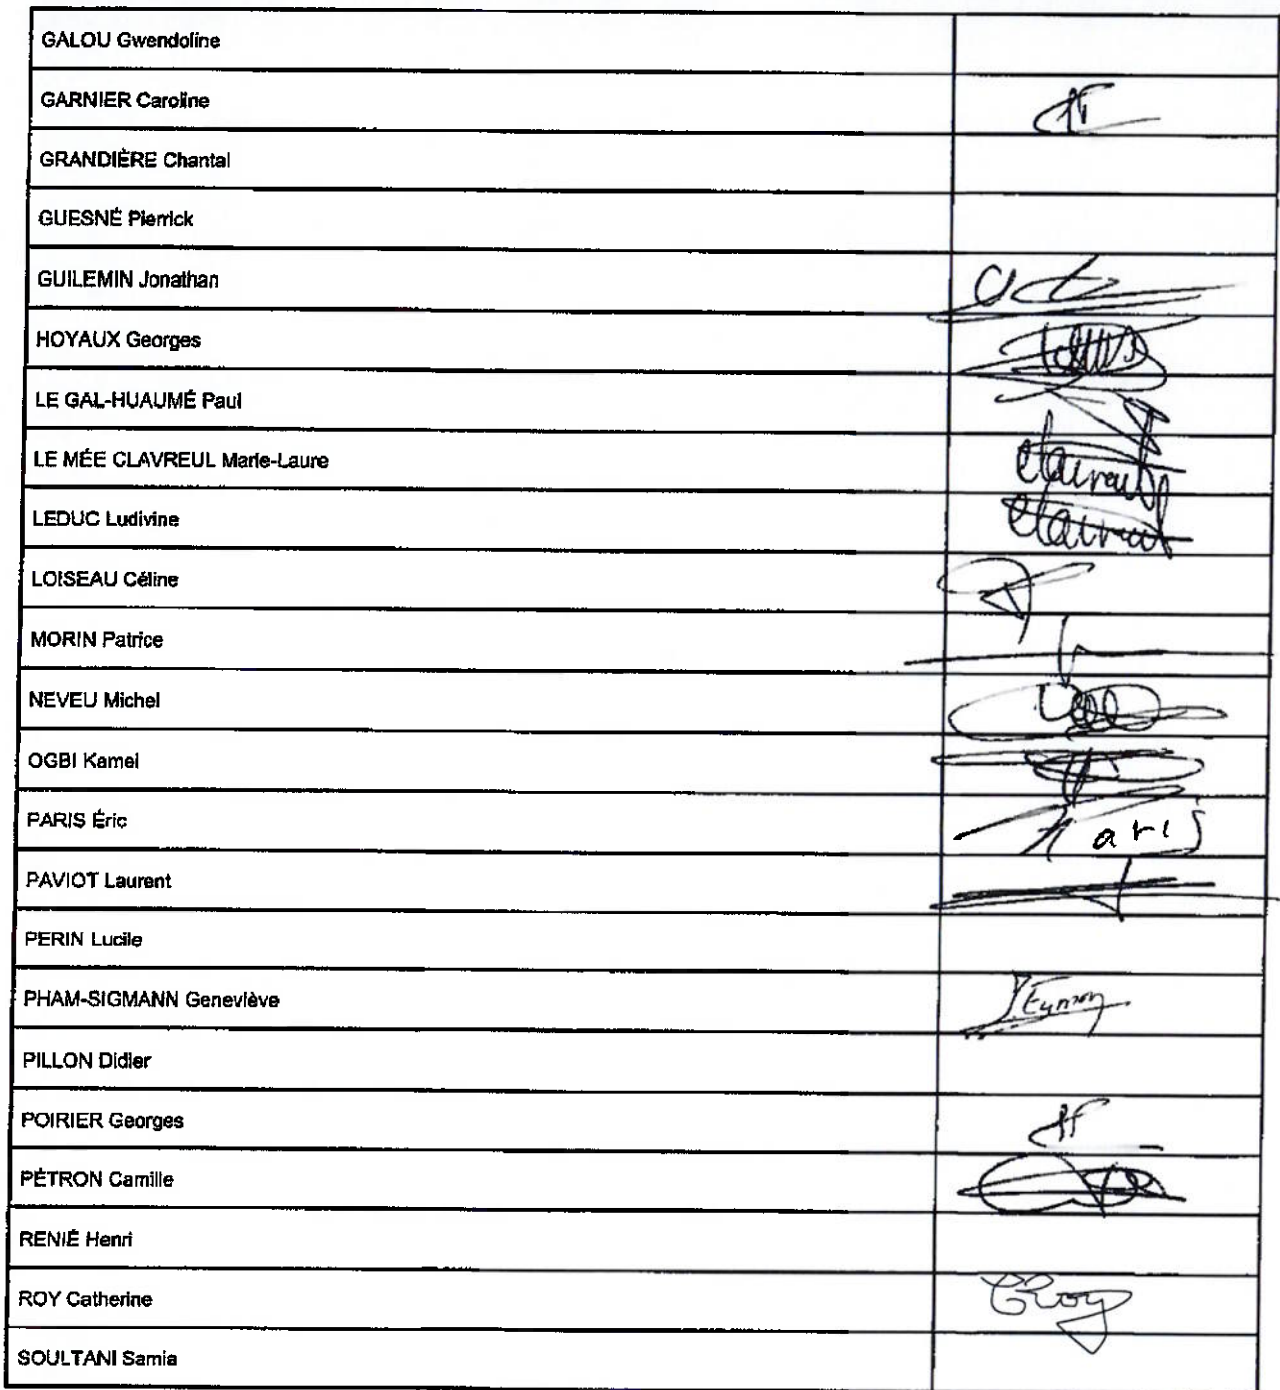 GALOU Gwendoline
GARNIER Caroline
GRANDIÈRE Chantal
GUESNÉ Pierrick
GUILEMIN Jonathan
HOYAUX Georges
LE GAL-HUAUMÉ Paul
LE MÉE CLAVREUL Marie-Laure
Clavreul
LEDUC Ludivine
Clavreul
LOISEAU Céline
MORIN Patrice
NEVEU Michel
OGBI Kamel
PARIS Éric
Paris
PAVIOT Laurent
PERIN Lucile
PHAM-SIGMANN Geneviève
PILLON Didier
POIRIER Georges
PÉTRON Camille
RENIÉ Henri
ROY Catherine
CRoy
SOULTANI Samia